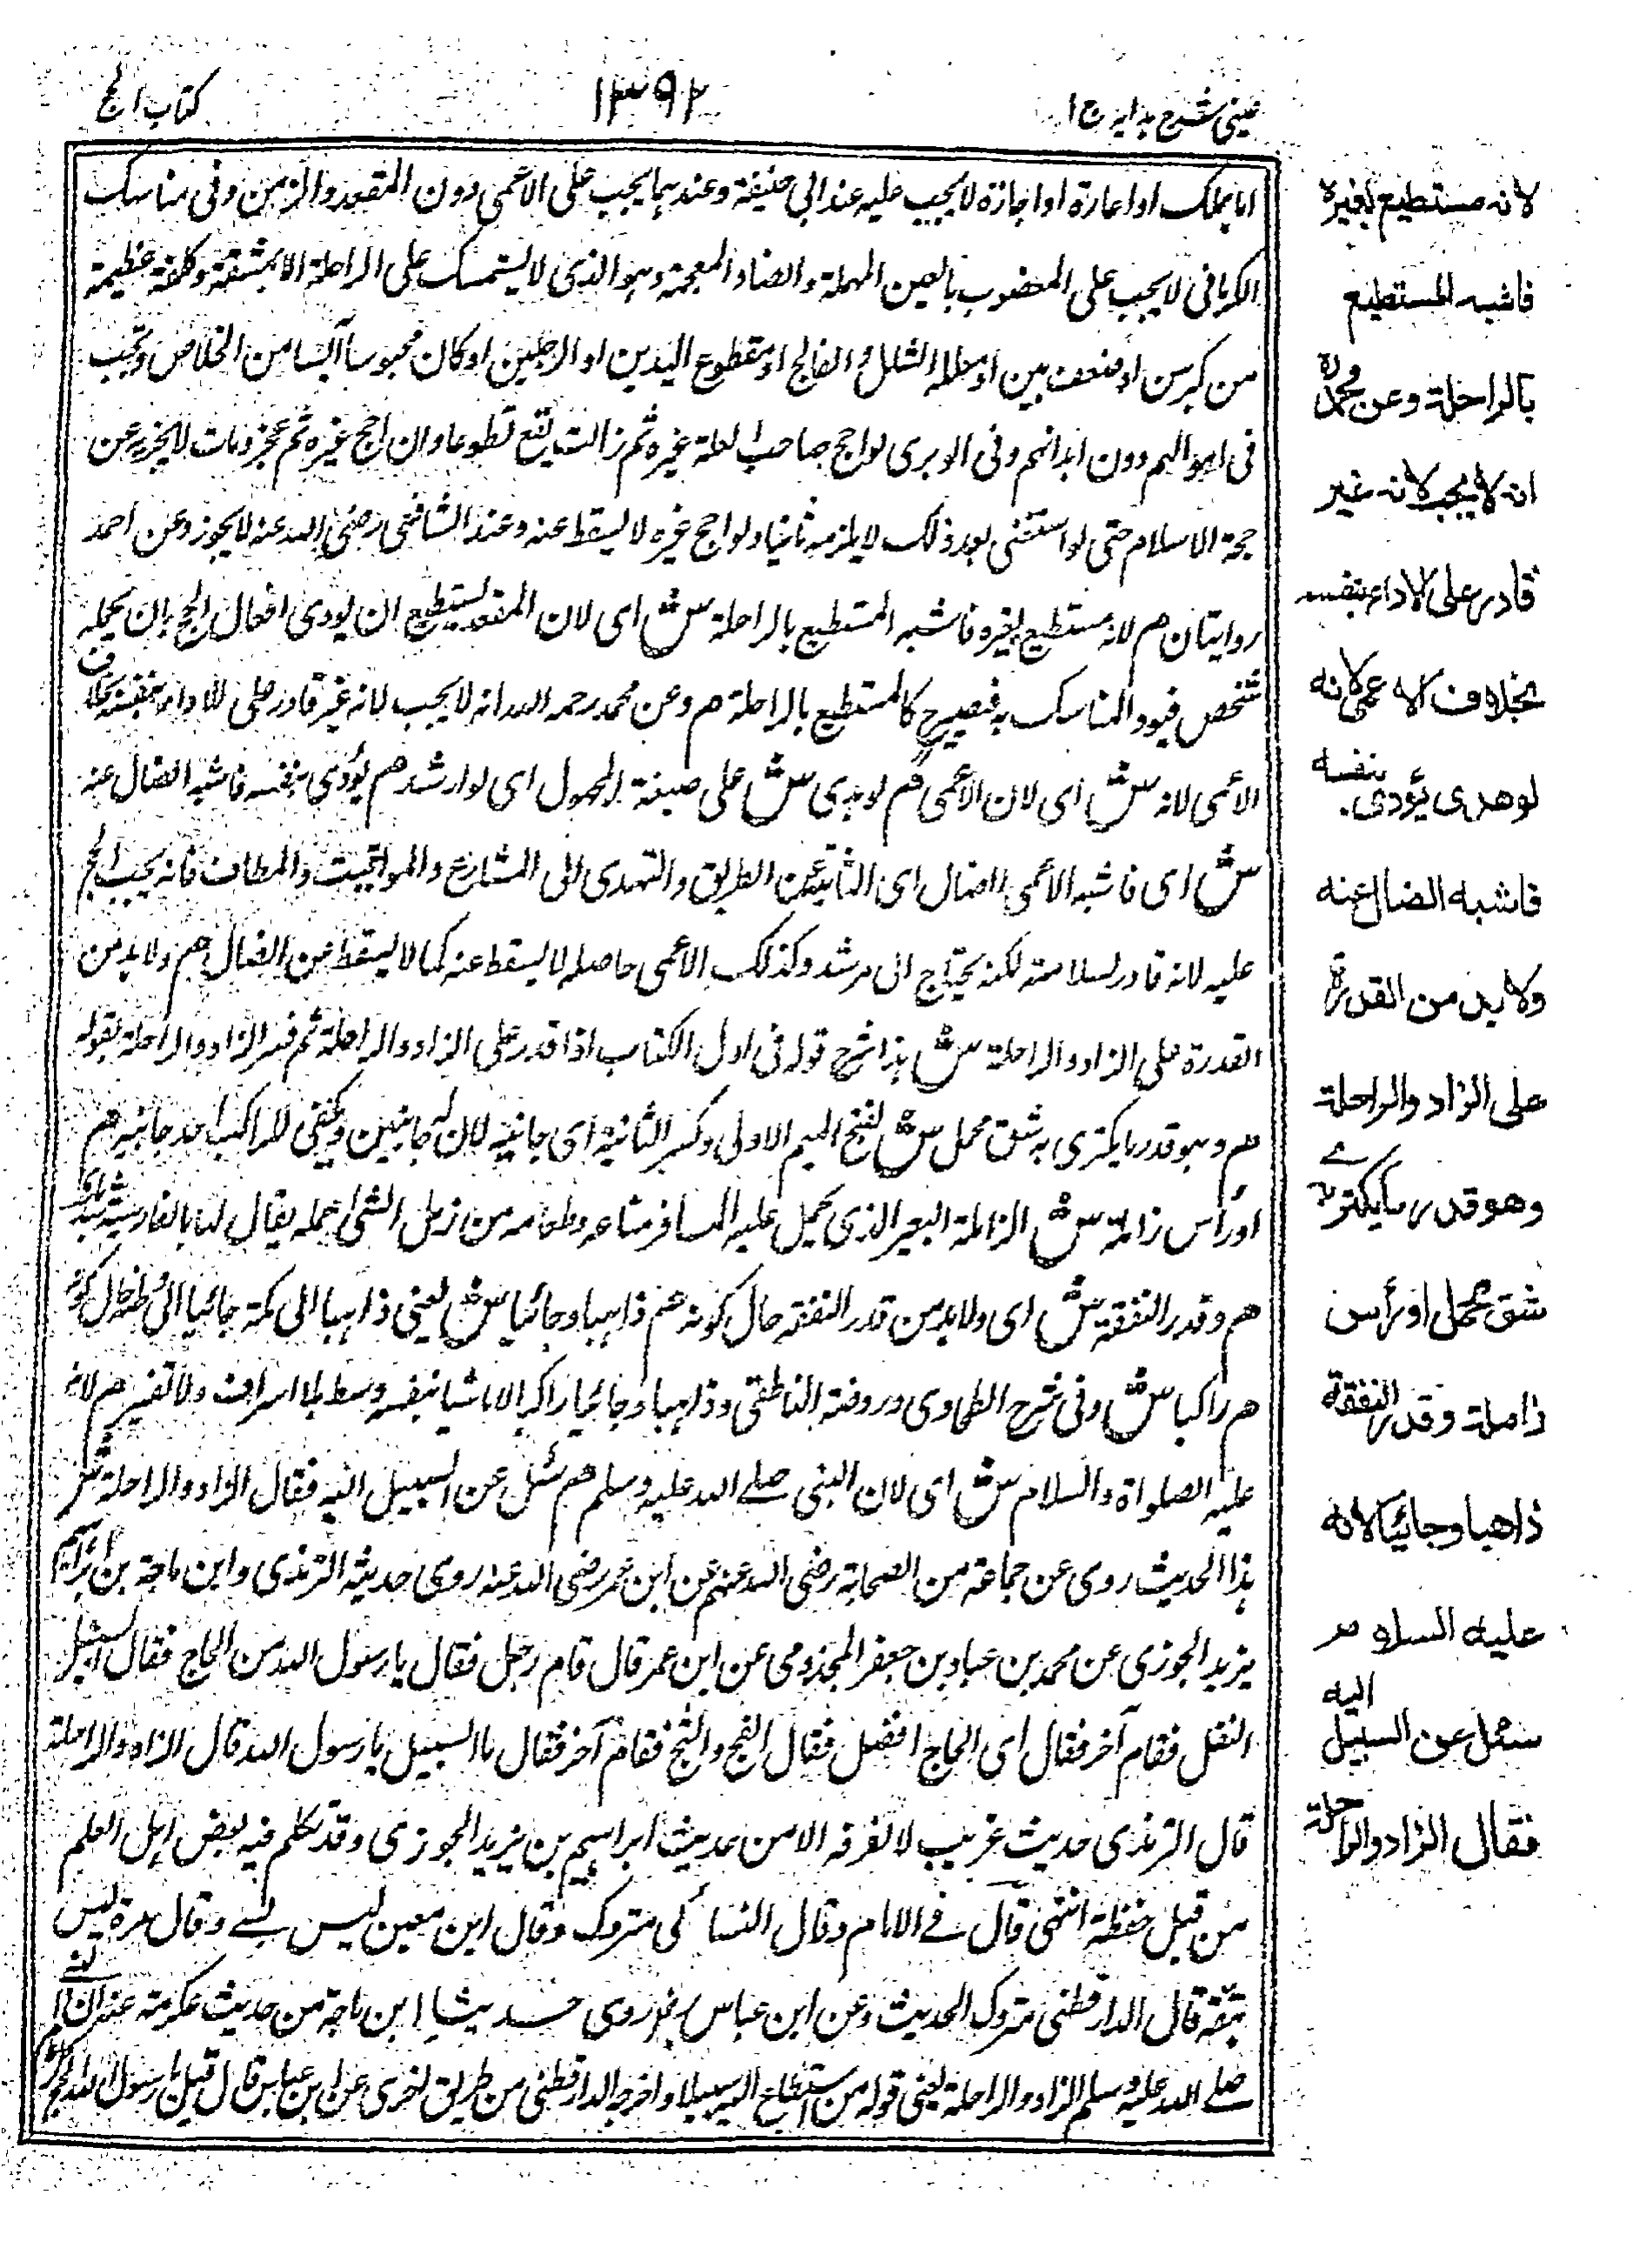 عینی شرح ہدایہ ج ۱
۱۳۹۲
کتاب الحج
اما بملك او اعارة او اجازة لا يجب عليه عند ابي حنيفة وعندهما يجب على الاعمى دون المقعد والزمن وفي مناسك
الكرماني لا يجب على المعضوب بالعين المهملة والضاد المعجمة وهو الذي لا يستمسك على الراحلة الا بمشقة وكلفة عظيمة
من كبر سن او ضعف بين او الشلل والفالج او مقطوع اليدين او الرجلين او كان محبوسا آيسا من الخلاص وتجب
في اموالهم دون ابدانهم وفي الوبرى لو احج صاحب العلة غيره ثم زالت يقع تطوعا وان احج غيره ثم عجز ومات لا يجزيه عن
حجة الاسلام حتى لو استغنى بعد ذلك لا يلزمه ثانيا ولو احج غيره لا يسقط عنه وعند الشافعي رضي الله عنه لا يجوز وعن احمد
روايتان م لانه مستطيع بغيره فاشبه المستطيع بالراحلة ش اى لان المقعد يستطيع ان يودى افعال الحج بان يحمله
شخص فيود المناسك به فيصير كالمستطيع بالراحلة م وعن محمد رحمه الله انه لا يجب لانه غير قادر على الاداء بنفسه بخلاف
الاعمى لانه ش اى لان الاعمى م لو هدى ش على صيغة المجهول اى لو ارشد م يؤدي بنفسه فاشبه الضال عنه
ش اى فاشبه الاعمى الضال اى عن الطريق والتهدى الى المشارع والمواقيت والمطاف فانه يجب الحج
عليه لانه قادر لسلامته لكنه يحتاج الى مرشد وكذلك الاعمى حاصله لا يسقط عنه كما لا يسقط عن الضال م ولا بد من
القدرة على الزاد والراحلة ش هذا شرح قوله في اول الكتاب اذا قدر على الزاد والراحلة ثم فسر الزاد والراحلة بقوله
م وهو قدر ما يكترى به شق محمل ش بفتح الميم الاولى وكسر الثانية اى جانبه لان له جانبين ويكفي للراكب احد جانبيه م
او رأس زاملة ش الزاملة البعير الذي يحمل عليه المسافر متاعه وطعامه من زمل الشئ حمله يقال لها بالفارسية
م وقدر النفقة ش اى ولا بد من قدر النفقة حال كونه م ذاهبا وجائيا ش يعني ذاهبا الى مكة جائيا الى وطنه حال كونه
م راكبا ش وفي شرح الطحاوى وروضة الناطفي وذاهبا وجائيا راكبا لا ماشيا بنفقة وسط بلا اسراف ولا تقتير م لانه
عليه الصلواة والسلام ش اى لان النبى صلى الله عليه وسلم م سئل عن السبيل اليه فقال الزاد والراحلة ش
هذا الحديث روى عن جماعة من الصحابة رضي الله عنهم عن ابن عمر رضي الله عنه روى حديثه الترمذى وابن ماجة بن ابراهيم
يزيد الجوزى عن محمد بن عباد بن جعفر المجذومى عن ابن عمر قال قام رجل فقال يا رسول الله من الحاج فقال الشعث
التفل فقام آخر فقال اى الحاج افضل فقال العج والثج فقام آخر فقال ما السبيل يا رسول الله قال الزاد والراحلة
قال الترمذى حديث غريب لا نعرفه الا من حديث ابراهيم بن يزيد الجوزى وقد تكلم فيه بعض اهل العلم
من قبل حفظه انتهى قال في الامام وقال النسائى متروك وقال ابن معين ليس بشئ وقال مرة ليس
بثقة قال الدارقطنى متروك الحديث وعن ابن عباس روى حديثا ابن ماجة من حديث عكرمة عنه ان النبي
صلى الله عليه وسلم الزاد والراحلة يعني قوله من استطاع اليه سبيلا واخرجه الدارقطنى من طريق اخرى عن ابن عباس قال قيل يا رسول الله الحج
لانه مستطيع بغيره
فاشبه المستطيع
بالراحلة وعن محمدؒ
انه لا يجب لانه غير
قادر على الاداء بنفسه
بخلاف الاعمى لانه
لو هدى يؤدى بنفسه
فاشبه الضال عنه
ولا بد من القدرة
على الزاد والراحلة
وهو قدر ما يكترى به
شق محمل او رأس
زاملة وقدر النفقة
ذاهبا وجائيا لانه
عليه السلام
سئل عن السبيل اليه
فقال الزاد والراحلة